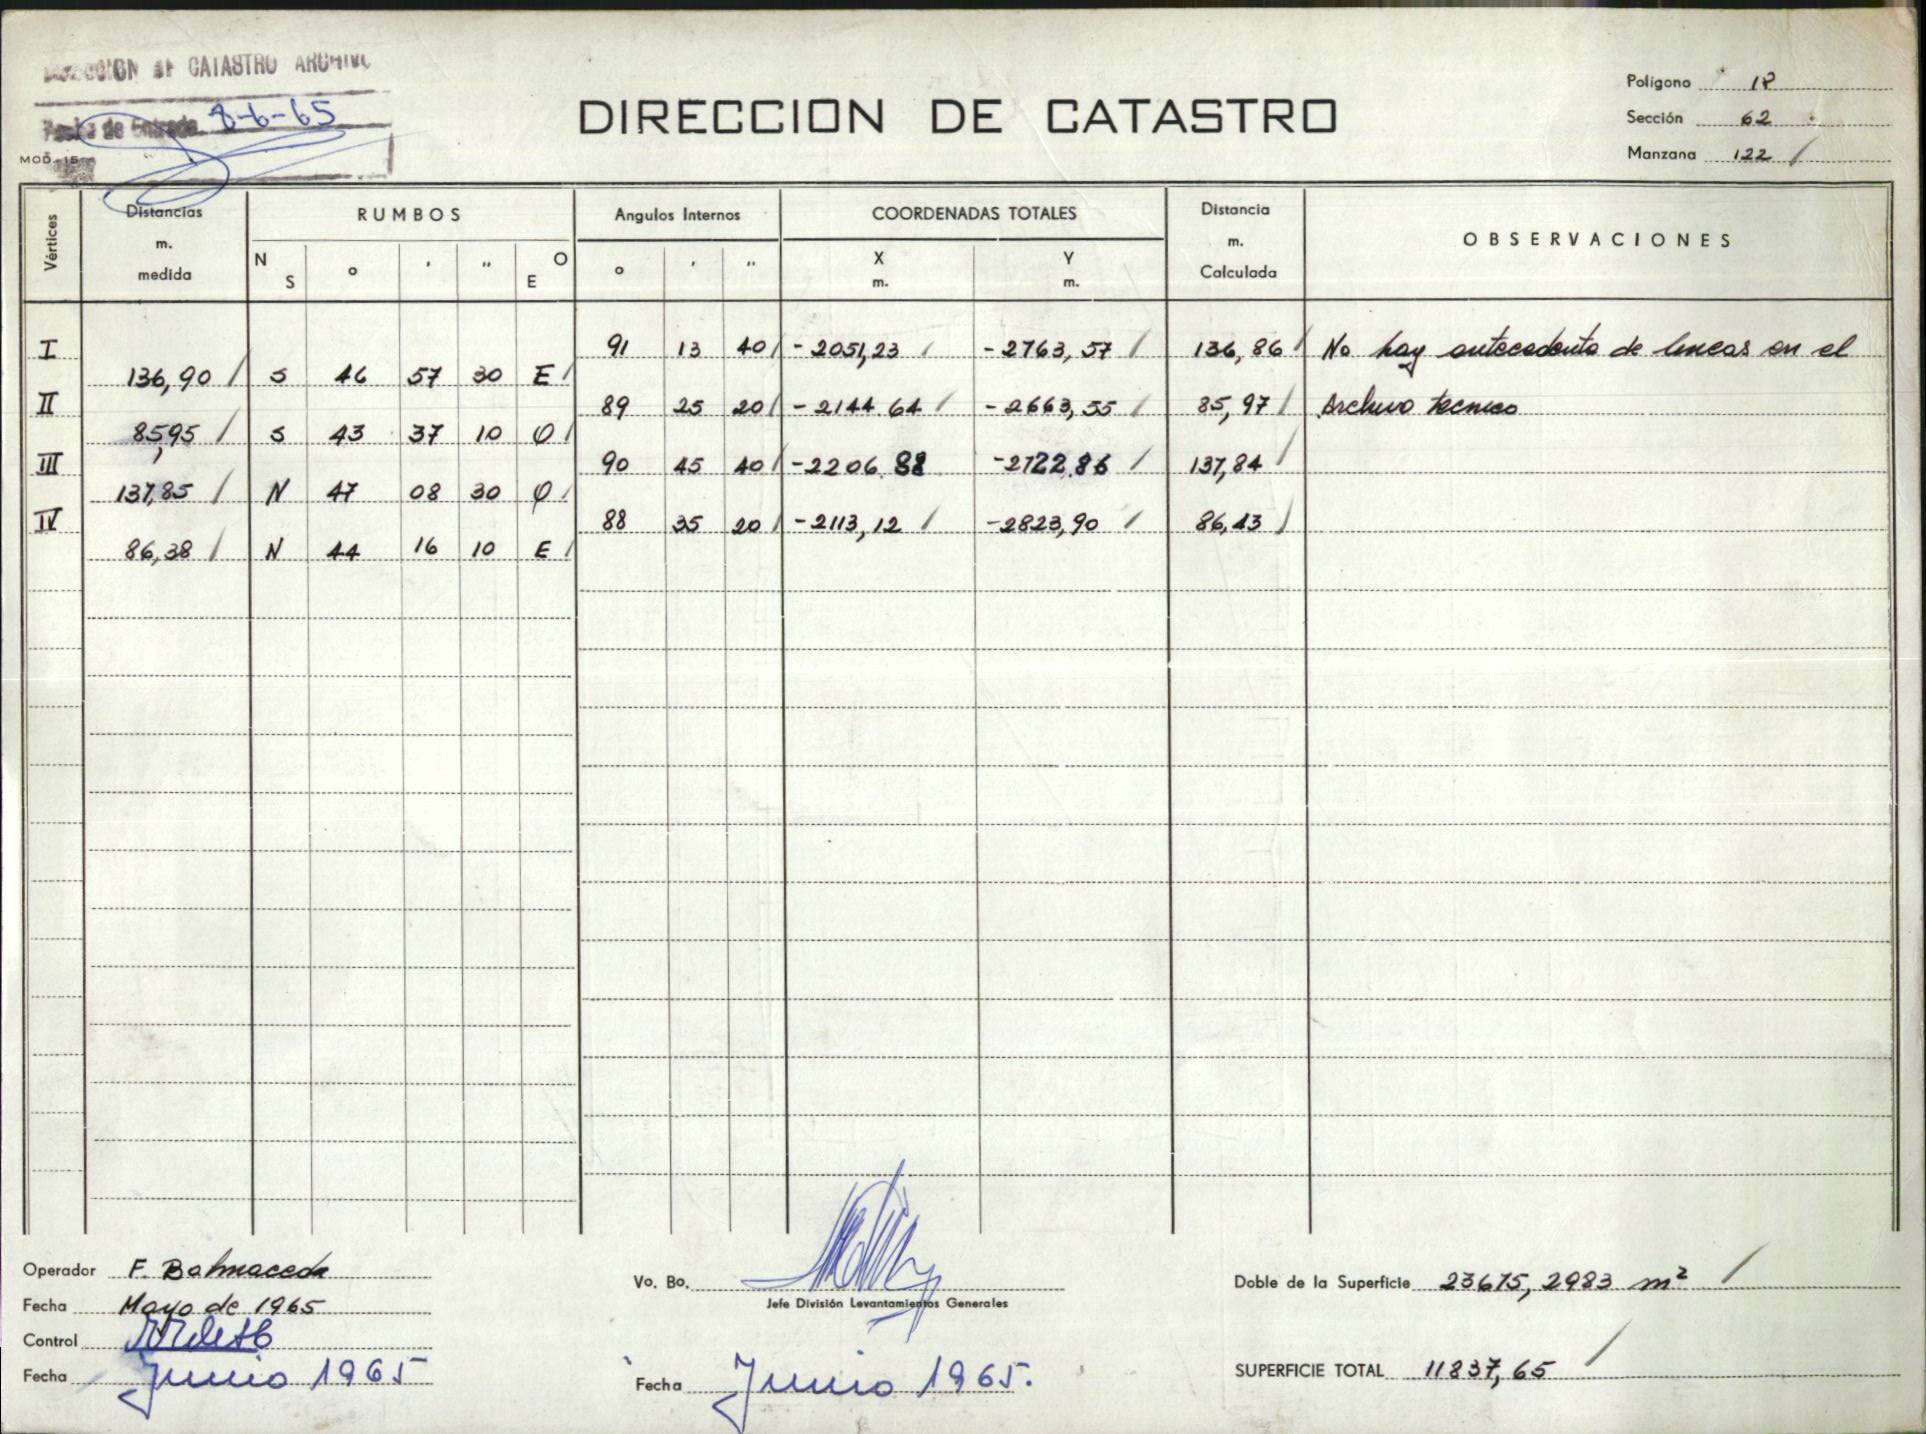 DIRECCION DE CATASTRO ARCHIVO
Fecha de Entrada 8-6-65
MOD. 15
DIRECCION DE CATASTRO
Polígono 18
Sección 62
Manzana 122
Vértices Distancias m. medida RUMBOS Angulos Internos COORDENADAS TOTALES Distancia m. Calculada OBSERVACIONES
N S ° ' '' O E ° ' '' X m. Y m.
I 91 13 40 -2051,23 -2763,57 136,86 No hay antecedente de lineas en el
136,90 S 46 57 30 E
II 89 25 20 -2144 64 -2663,55 85,97 Archivo tecnico
85,95 S 43 37 10 O
III 90 45 40 -2206 88 -2722,86 137,84
137,85 N 47 08 30 O
IV 88 35 20 -2113,12 -2823,90 86,43
86,38 N 44 16 10 E
Operador F. Balmaceda
Fecha Mayo de 1965
Control
Fecha Junio 1965
Vo. Bo.
Jefe División Levantamientos Generales
Fecha Junio 1965.
Doble de la Superficie 23675,2983 m²
SUPERFICIE TOTAL 11837,65